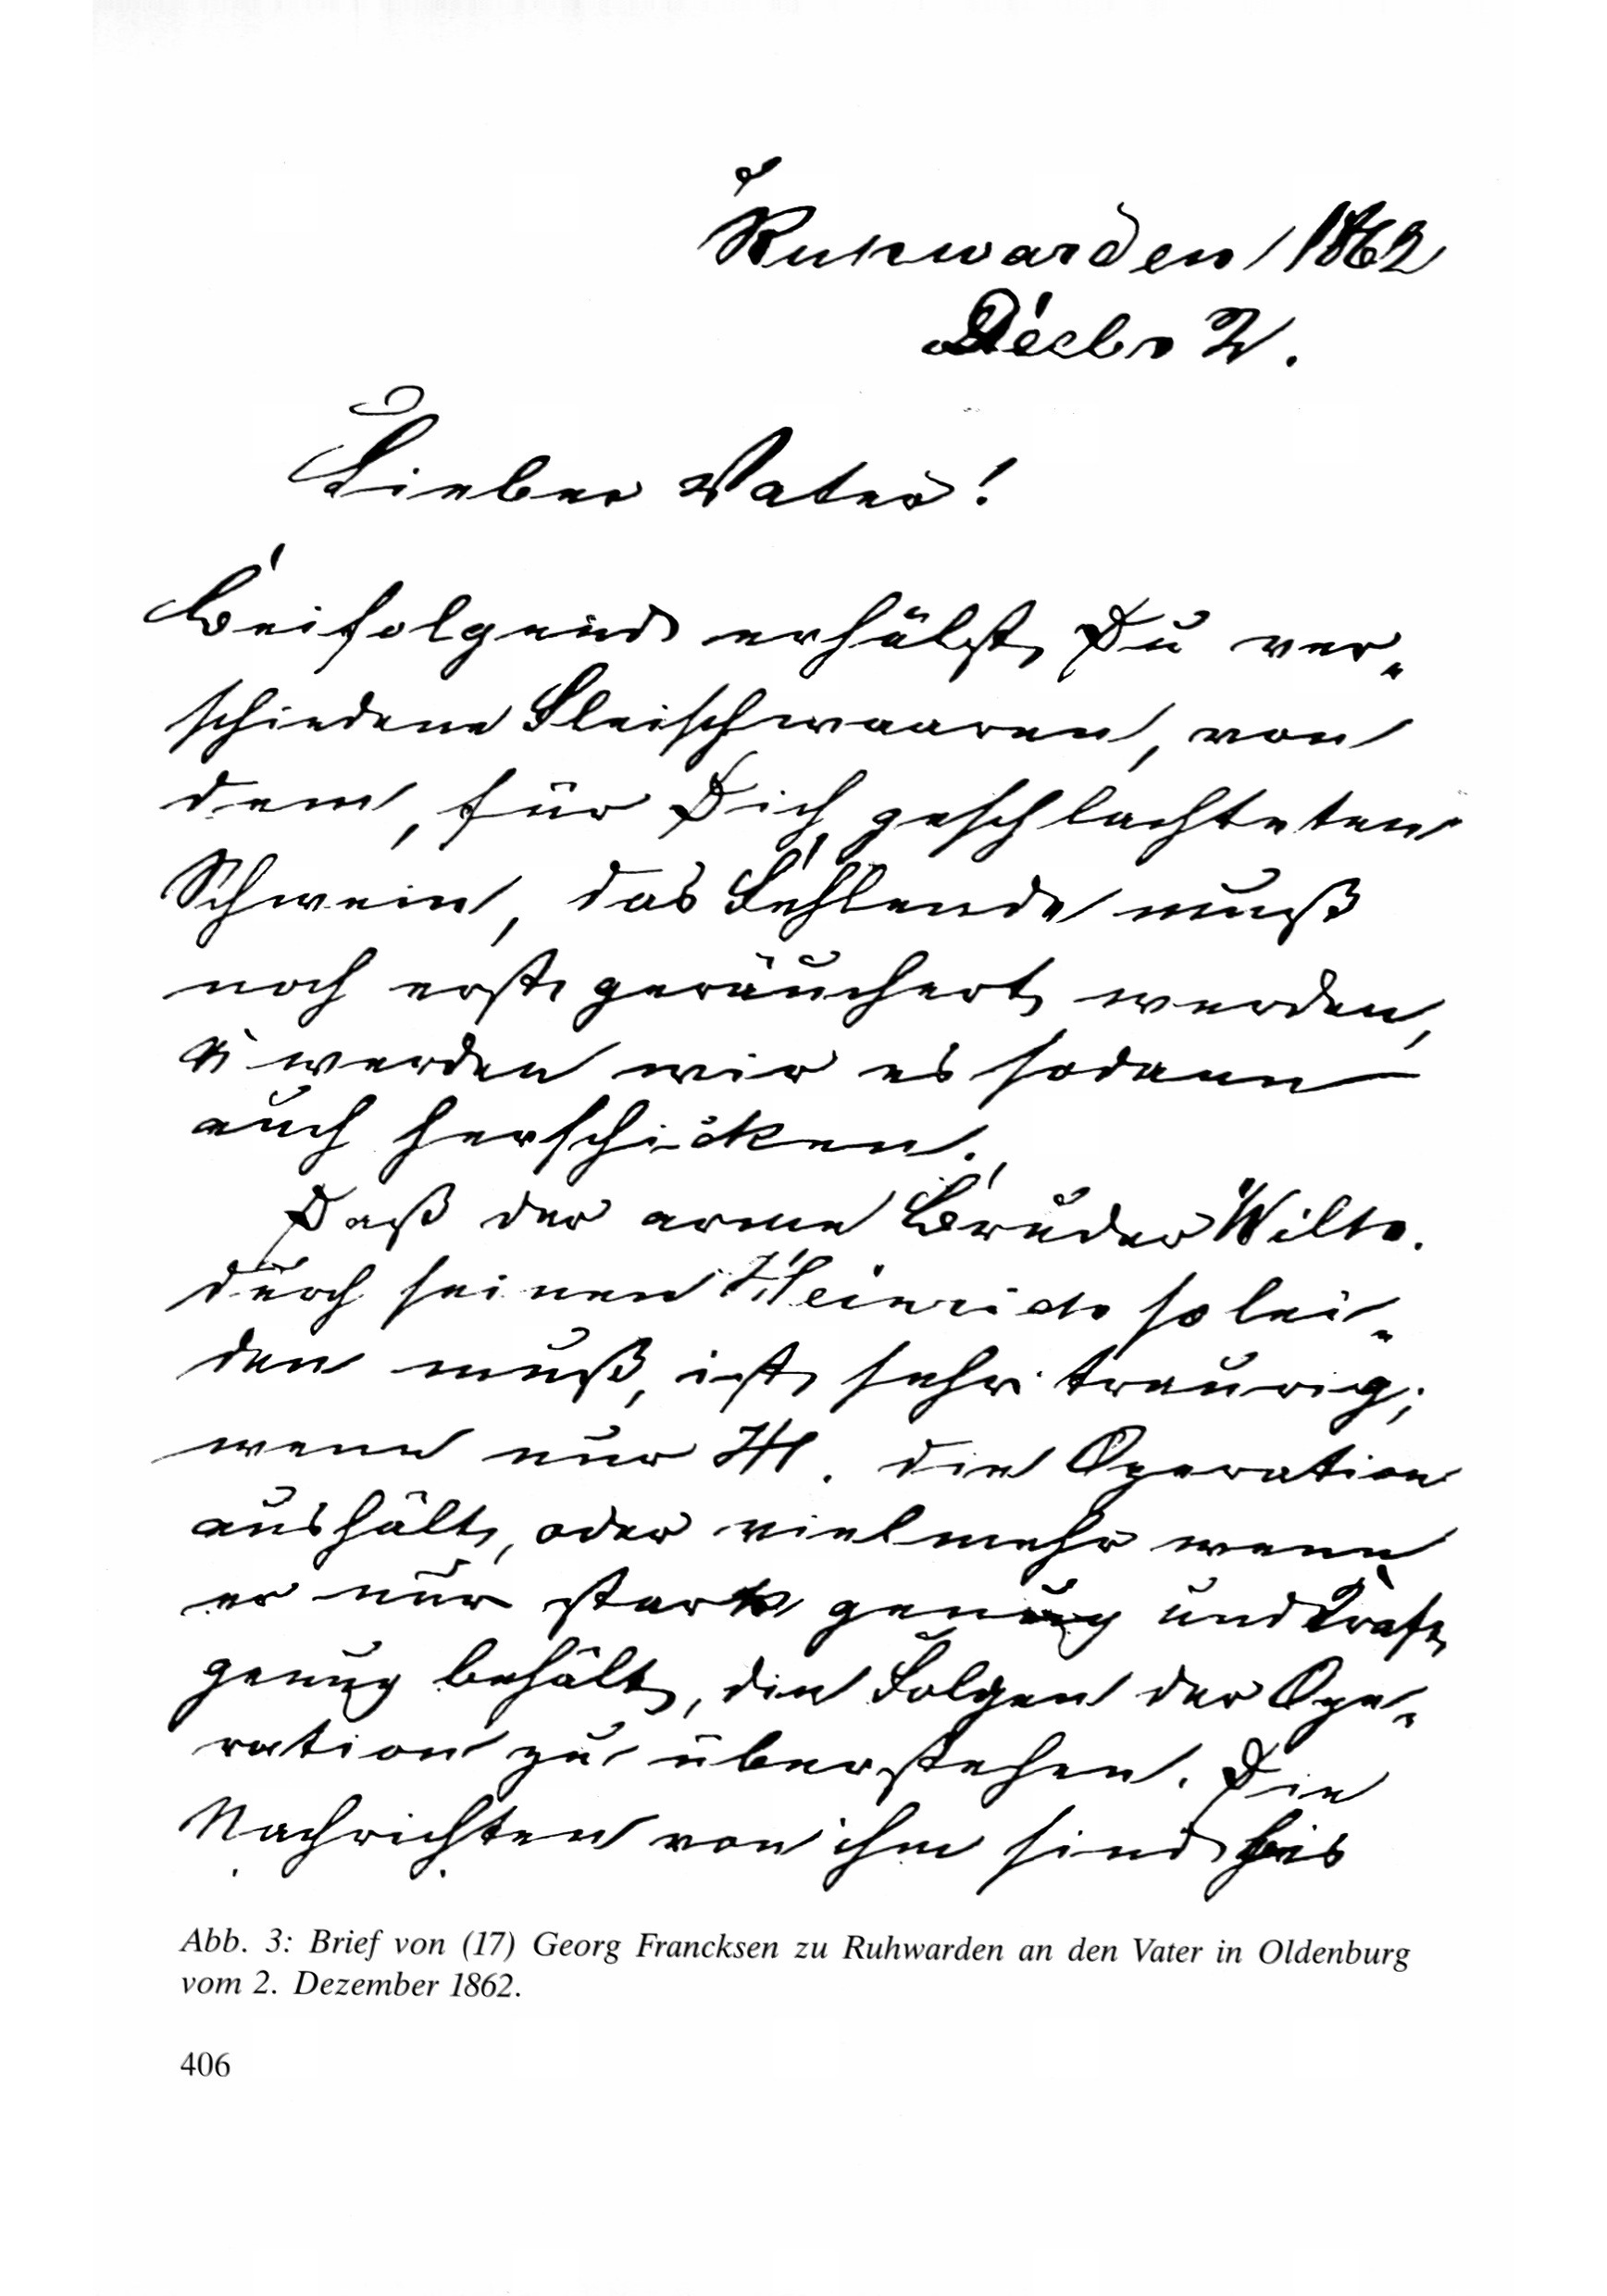 Ruhwarden, 1862
Decbr 2.
Lieber Vater!
Beifolgend erhälst Du ver-
schiedene Fleischwaaren, von
dem, für Dich geschlachteten
Schwein, das Fehlende muß
noch erst geräuchert werden,
u werden wir es sodann
auch herschicken.
Daß der arme Bruder Wilh.
durch seinen Heinrich so lei-
den muß, ist sehr traurig;
wenn nur H. die Operation
aushält, oder vielmehr wenn
er nur stark genug und Kraft
genug behält, die Folgen der Ope-
ration zu überstehen. Die
Nachrichten von ihm sind bis
Abb. 3: Brief von (17) Georg Francksen zu Ruhwarden an den Vater in Oldenburg
vom 2. Dezember 1862.
406